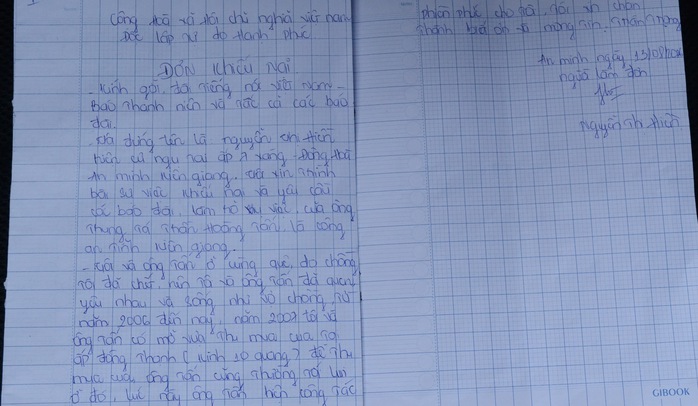 Cộng hòa xã hội chủ nghĩa việt nam
Độc lập tự do hạnh phúc
ĐƠN Khiếu Nại
- Kính gởi, đài tiếng nói việt nam -
Bao Thanh niên và tất cả các báo
đài.
tôi đứng tên là nguyễn thị Hiền
hiện cư ngụ tại ấp 7 xáng - Đông hòa
An minh kiên giang. tôi xin trình
bài sự việc khiếu nại và yêu cầu
các báo đài, làm rỏ việc, của ông
Trung, tá Trần Hoàng Tấn, là công
an tỉnh kiên giang.
- tôi và ông Tấn ở cùng quê, do chồng
tôi đã chết, nên tôi và ông Tấn đã quen
yêu nhau và sống như vợ chồng từ
năm 2006 đến nay, năm 2009 tôi và
ông Tấn có mở vựa thu mua cua tại
ấp đông Thành (kinh 10 quang) để thu
mua cua, ông Tấn cũng thường tới lui
ở đó, lúc nầy ông Tấn hiện công tác
phán phúc cho tôi, tôi xin chân
thành biết ơn và mong tin. Trân Trọng
An minh ngày, 15/08/
người làm đơn
nguyễn Thị Hiền
GIBOOK